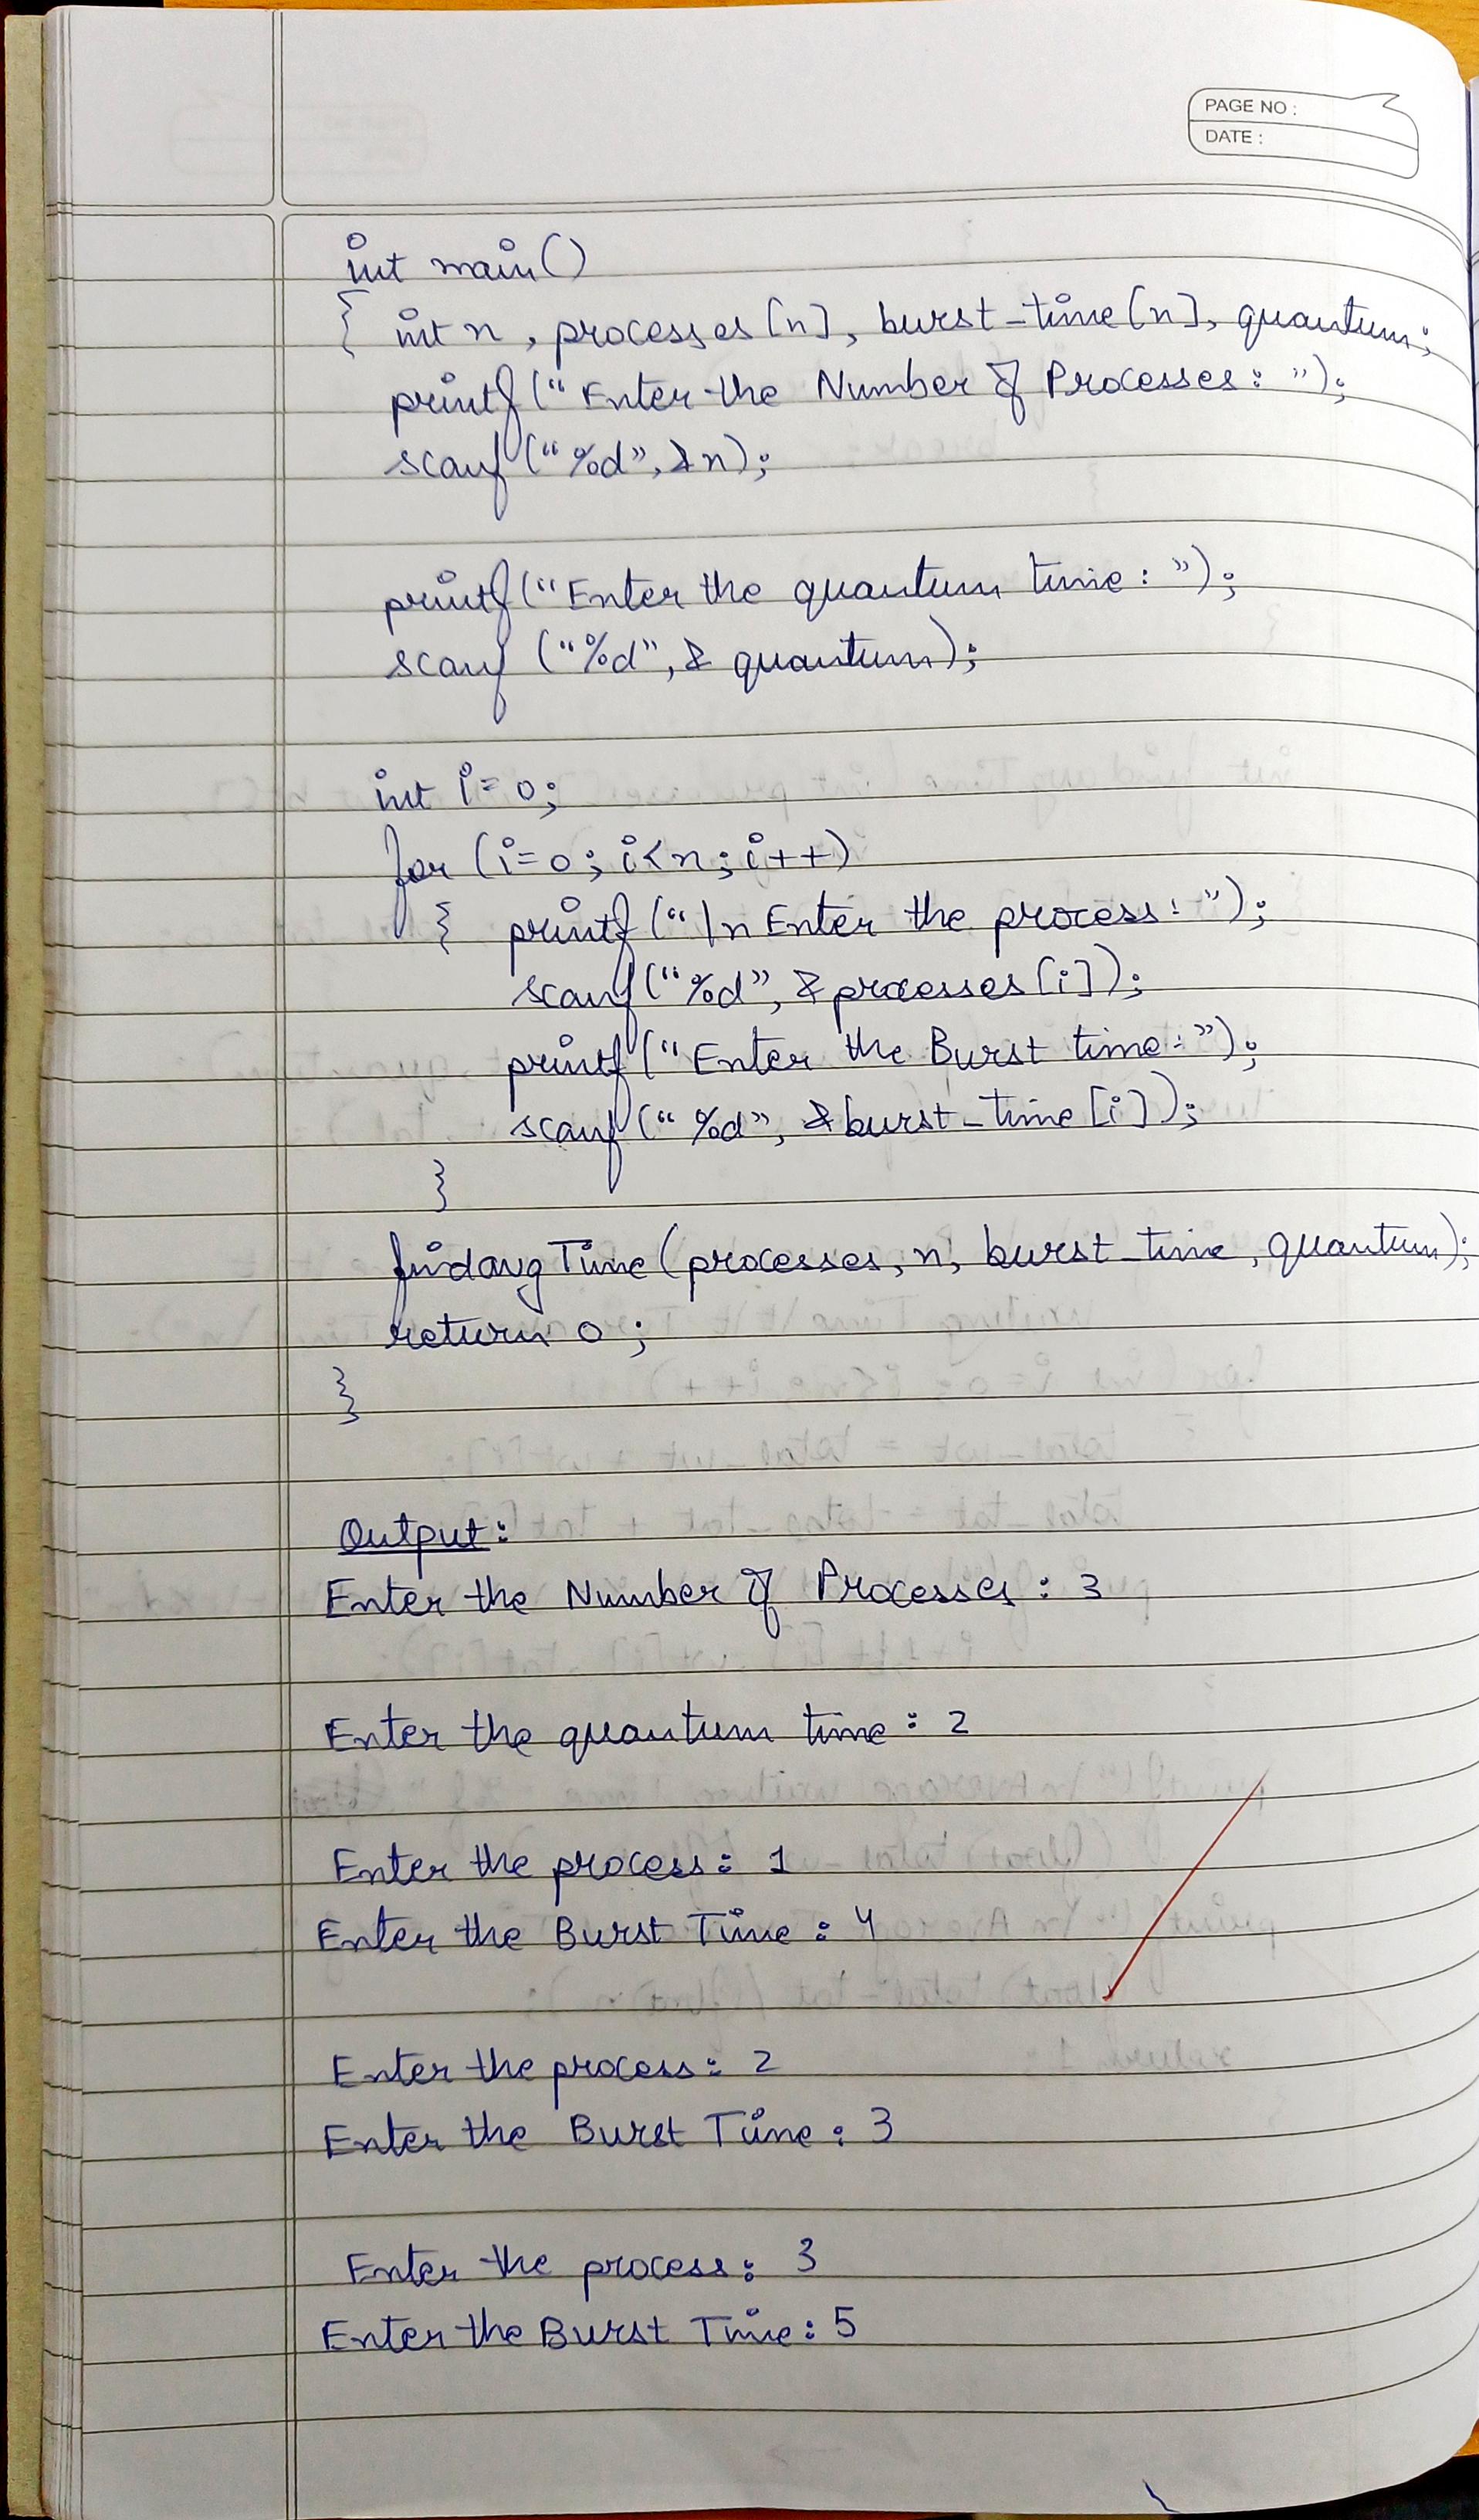 PAGE NO :
DATE :
int main()
{ int n, processes[n], burst-time[n], quantum;
printf("Enter the Number of Processes: ");
scanf("%d", &n);
printf("Enter the quantum time: ");
scanf ("%d", & quantum);
int i=0;
for (i=0; i<n; i++)
{ printf("\n Enter the process: ");
scanf("%d", &processes[i]);
printf("Enter the Burst time:");
scanf("%d", &burst-time[i]);
}
findavgTime(processes, n, burst-time, quantum);
return 0;
}
Output:
Enter the Number of Processes : 3
Enter the quantum time : 2
Enter the process: 1
Enter the Burst Time : 4
Enter the process: 2
Enter the Burst Time : 3
Enter the process: 3
Enter the Burst Time : 5